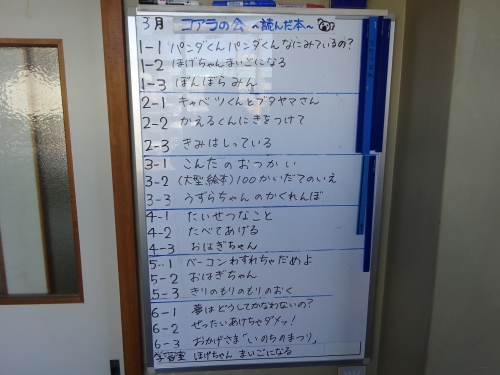 3月 コアラの会 ~読んだ本~
1-1 パンダくんパンダくんなにみているの?
1-2 ほげちゃんまいごになる
1-3 ぼんぼらみん
2-1 キャベツくんとブタヤマさん
2-2 かえるくんにきをつけて
2-3 きみはしっている
3-1 こんたのおつかい
3-2 (大型絵本)100かいだてのいえ
3-3 うずらちゃんのかくれんぼ
4-1 たいせつなこと
4-2 たべてあげる
4-3 おはぎちゃん
5-1 ベーコンわすれちゃだめよ
5-2 おはぎちゃん
5-3 きりのもりのもりのおく
6-1 夢はどうしてかなわないの?
6-2 ぜったいあけちゃダメッ!
6-3 おかげさま「いのちのまつり」
学習室 ほげちゃん まいごになる